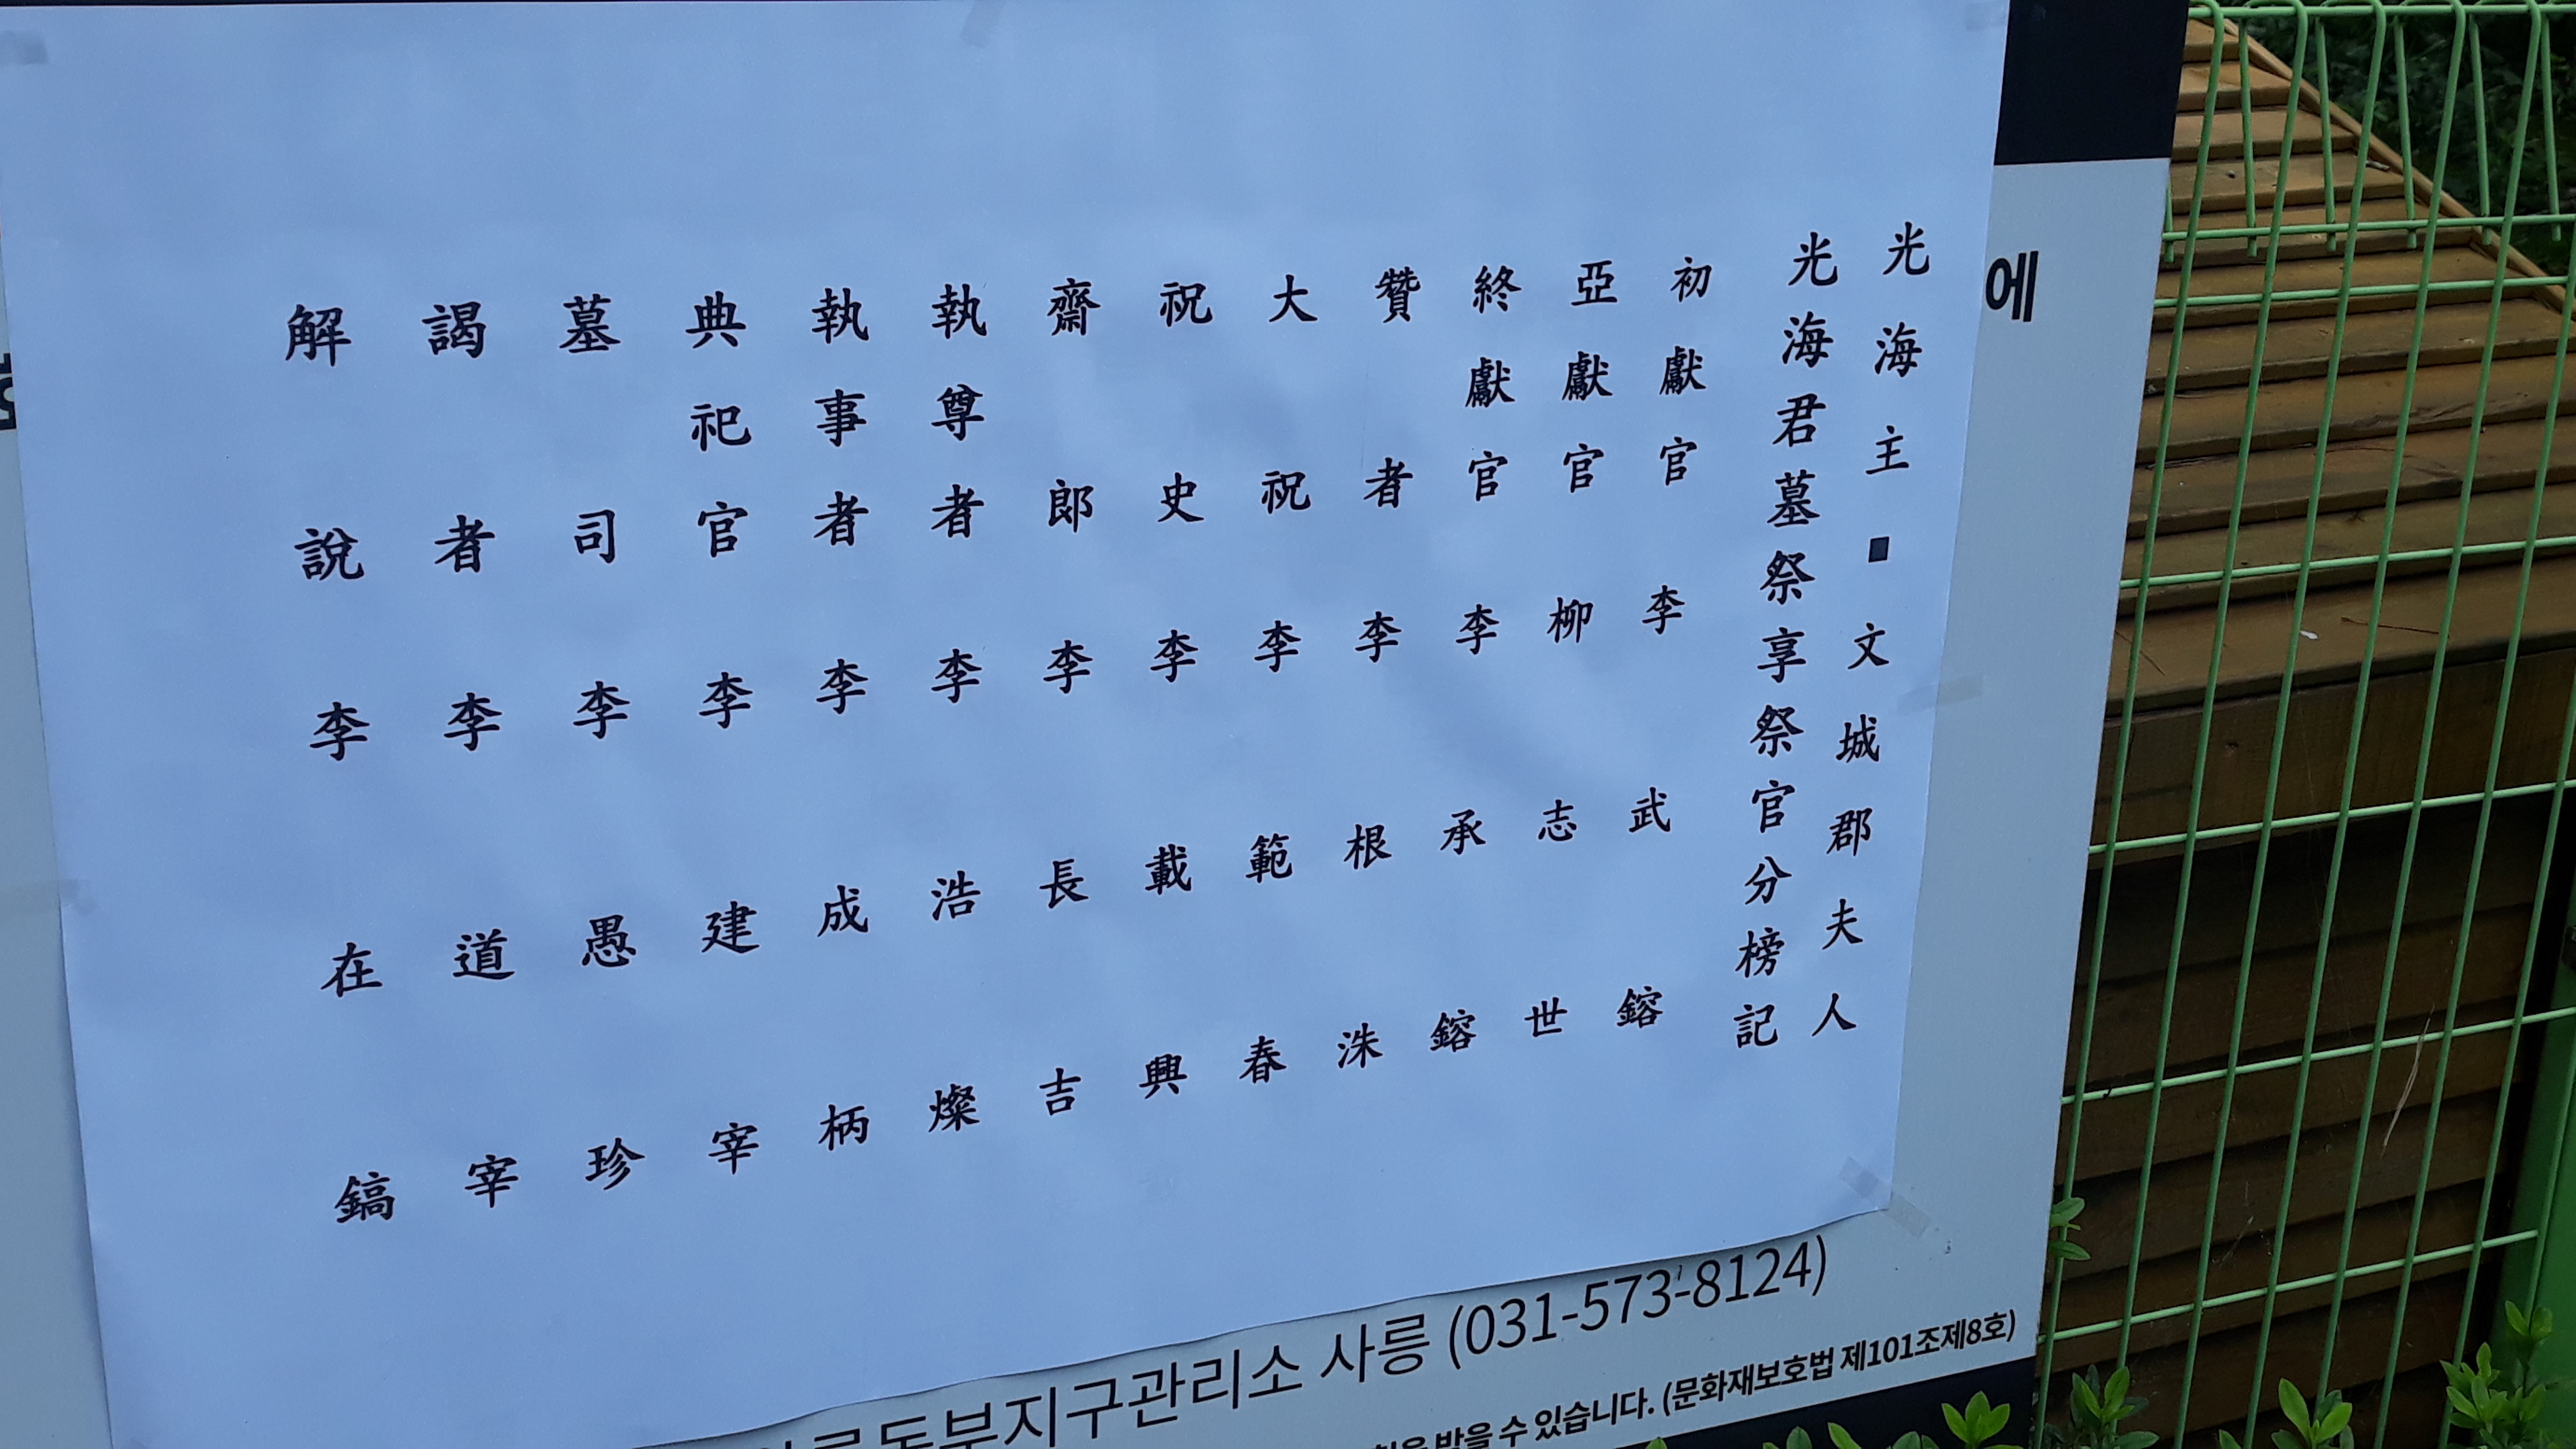 光海主■文城郡夫人
光海君墓祭享祭官分榜記
初獻官 李武鎔
亞獻官 柳志世
終獻官 李承鎔
贊者 李根洙
大祝 李範春
祝史 李載興
齋郞 李長吉
執尊者 李浩燦
執事者 李成柄
典祀官 李建宰
墓司 李愚珍
謁者 李道宰
解說 李在鎬
에
동부지구관리소 사릉 (031-573-8124)
받을 수 있습니다. (문화재보호법 제101조제8호)